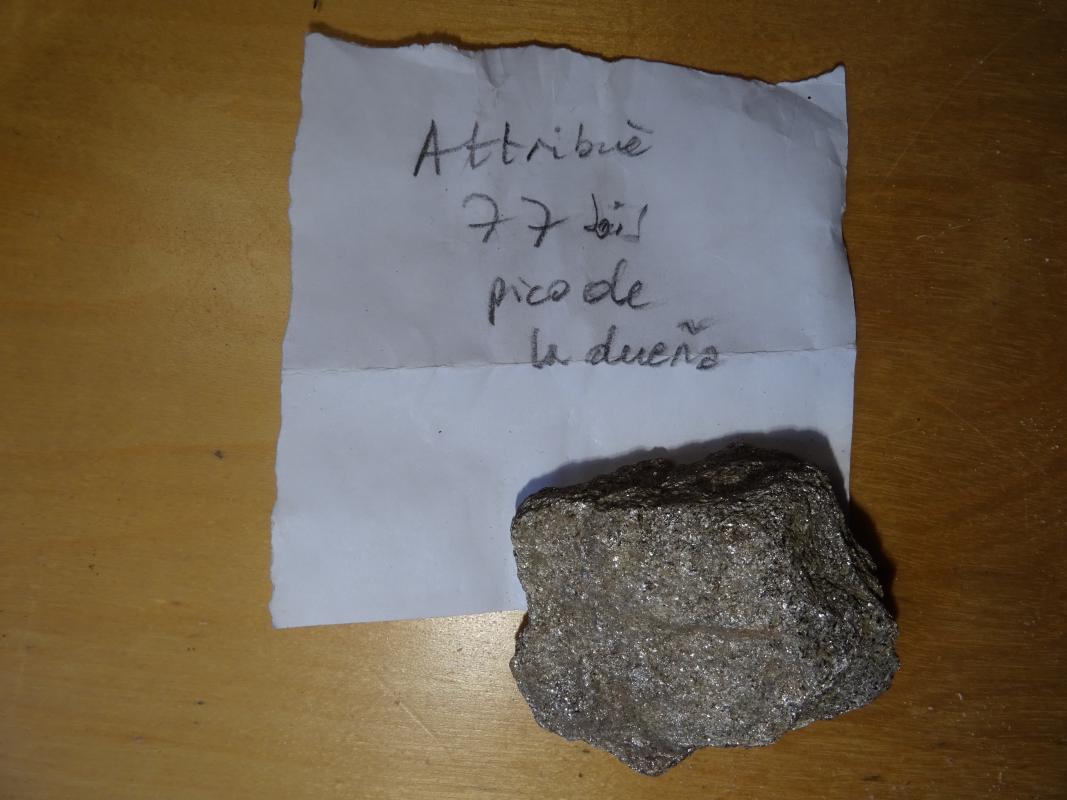 Attribuè
77 bis
pico de
la dueña